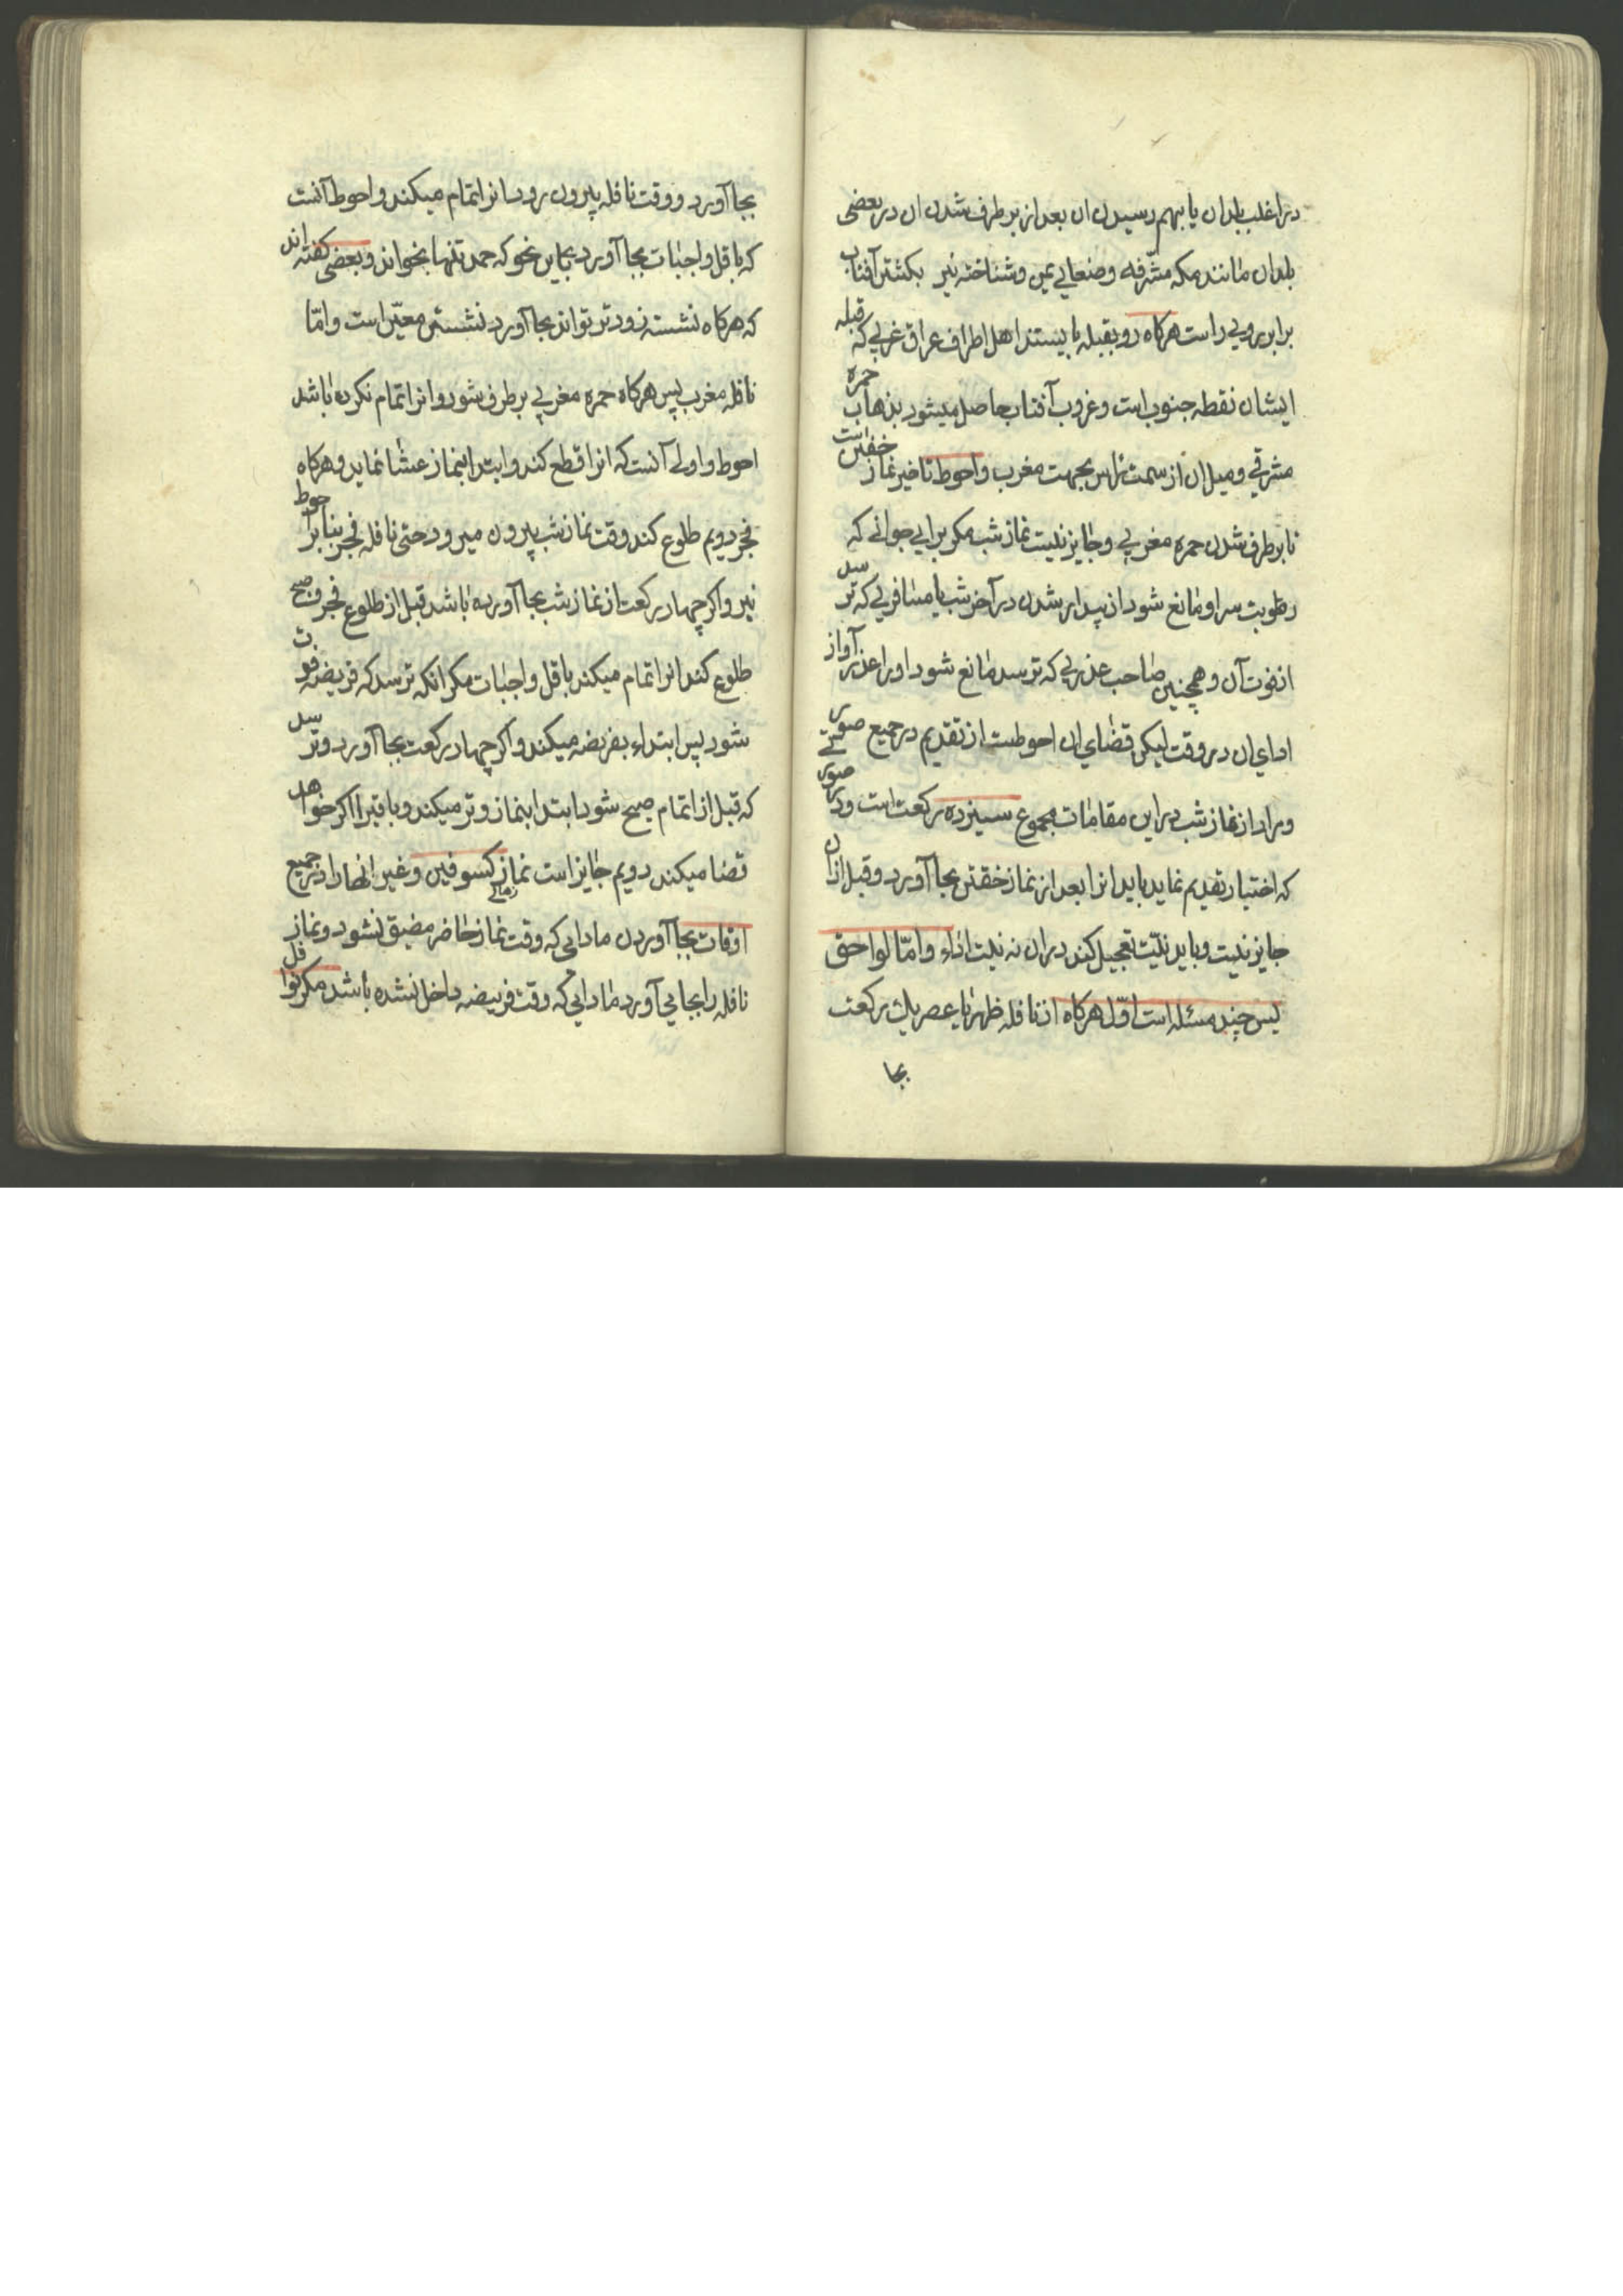 در اغلب بلدان یا بهم رسیدن ان بعد از بر طرف شدن ان در بعضی
بلدان مانند مکه مشرفه و صنعای یمن و شناخته نیز بکشتن آفتاب
برابروی راست هرکاه رو بقبله بایستند اهل اطراف عراق غربی که قبله
ایشان نقطه جنوب است و غروب آفتاب حاصل میشود بذهاب حمره
مشرقی و میل ان از سمت راس بجهت مغرب و احوط تاخیر نماز خفتن است
تا بر طرف شدن حمره مغربی و جایز نیست نماز شب مکر برای جوانی که
رطوبت سر او مانع شود از بیدار شدن در آخر شب یا مسافری که ترسد
از فوت آن و همچنین صاحب عذری که ترسد مانع شود او را عذر او از
ادای ان در وقت لیکن قضای ان احوطست از تقدیم در جمیع صور
و مراد از نماز شب در این مقامات مجموع سیزده رکعت است و در صورتی
که اختیار تقدیم نماید باید انرا بعد از نماز خفتن بجا آورد و قبل از ان
جایز نیست و باید نیّت تعجیل کند در ان نه نیت اداء و امّا لواحق
پس چند مسئله است اوّل هرکاه از نافله ظهر یا عصر یك رکعت
بجا
بجا آورد و وقت نافله بیرون رود انرا تمام میکند و احوط آنست
که باقل واجبات بجا آورد باین نحو که حمد تنها بخواند و بعضی کفته اند
که هرکاه نشسته زودتر تواند بجا آورد نشستن معیّن است و امّا
نافله مغرب پس هرکاه حمره مغربی بر طرف شود و انرا تمام نکرده باشد
احوط و اولی آنست که انرا قطع کند و ابتدا بنماز عشا نماید و هرکاه
فجر دویم طلوع کند وقت نماز شب بیرون میرود حتی نافله فجر بنابر احوط
نیز و اکر چهار رکعت از نماز شب بجا آورده باشد قبل از طلوع فجر و صبح
طلوع کند انرا تمام میکند باقل واجبات مکر انکه ترسد که فریضه فوت
شود پس ابتداء بفریضه میکند و اکر چهار رکعت بجا آورد و ترسد
که قبل از اتمام صبح شود ابتدا بنماز وتر میکند و باقی را اکر خواهد
قضا میکند دویم جایز است نماز کسوفین و غیر انها را در جمیع
اوقات بجا آوردن مادامی که وقت نماز حاضر مضیق نشود و نماز
نافله را بجا می آورد مادامی که وقت فریضه داخل نشده باشد مکر نوافل